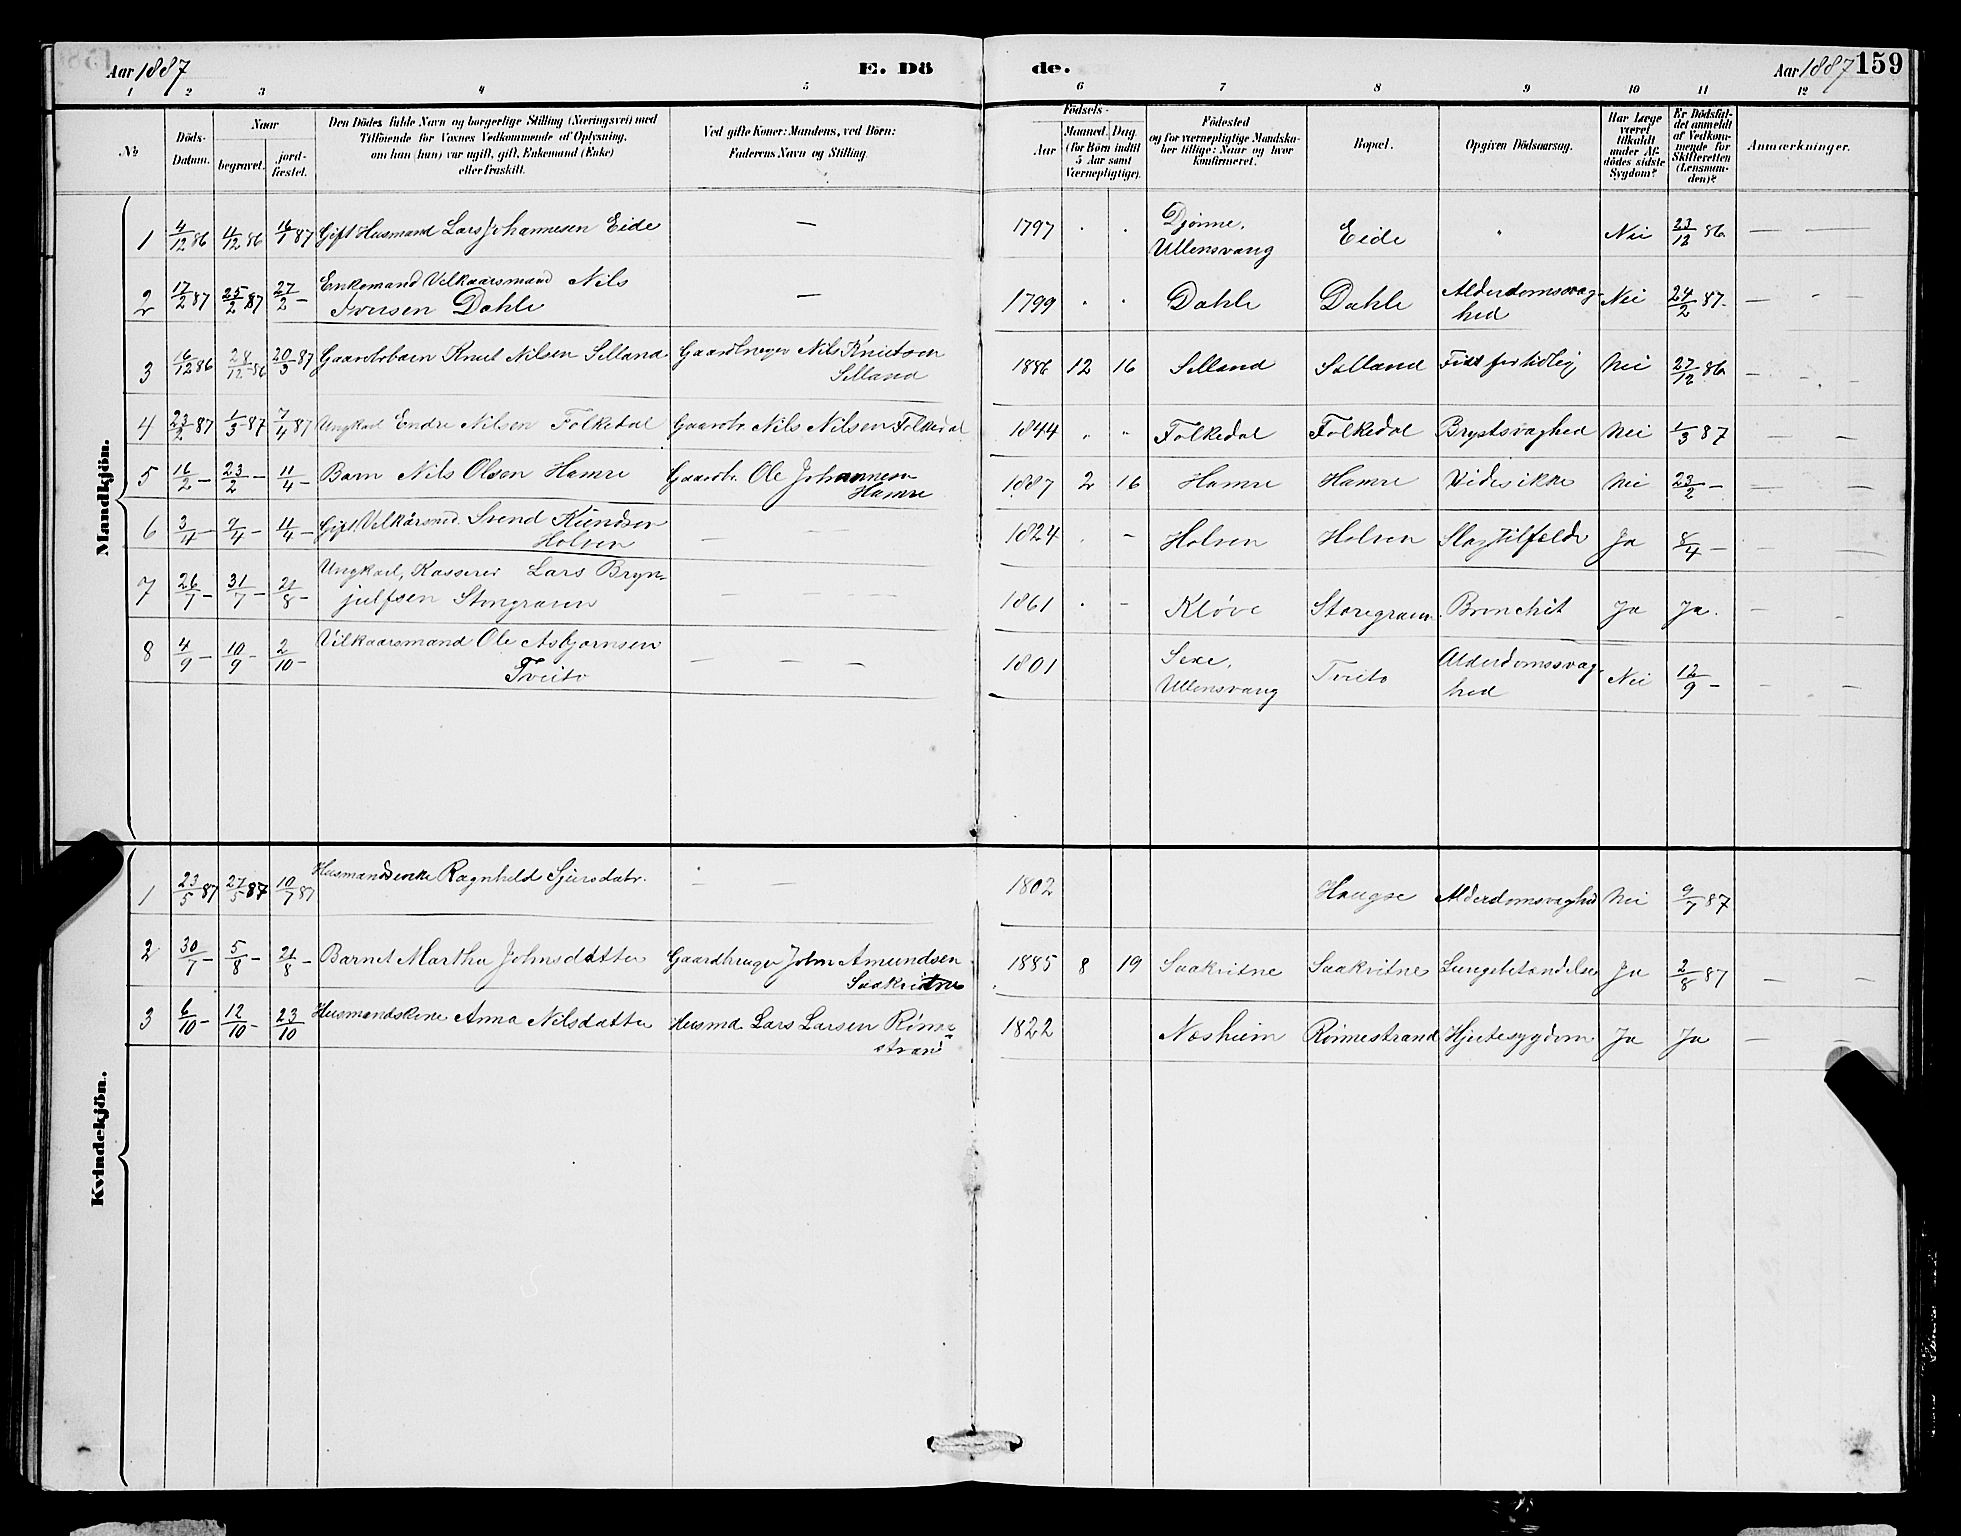 Aar 1887
E. Dö
de.
Aar 1887
159
1 2 3 4 5 6 7 8 9 10 11 12
No
Döds-
Datum.
Naar
begravet.
jord-
fæstet.
Den Dödes fulde Navn og borgerlige Stilling (Næringsvei) med
Tilföiende for Voxnes Vedkommende af Oplysning,
om han (hun) var ugift, gift, Enkemand (Enke)
eller fraskilt.
Ved gifte Koner: Mandens, ved Börn:
Faderens Navn og Stilling.
Födsels-
Aar
Maaned. Dag.
(for Börn indtil
5 Aar samt
Værnepligtige).
Födested
og for værnepligtige Mandska-
ber tillige: Naar og hvor
konfirmeret.
Bopæl.
Opgiven Dödsaarsag.
Har Læge
været
tilkaldt
under Af-
dödes sidste
Sygdom?
Er Dödsfal-
det anmeldt
af Vedkom-
mende for
Skifteretten
(Lensman-
den)?
Anmærkninger.
Mandkjön.
1 4/12 86 4/12 86 16/1 87 Gift Husmand Lars Johannesen Eide — 1797 Djönne, Ullensvang Eide Nei 23/12 86 — —
2 17/2 87 25/2 87 27/2 – Enkemand Velkaarsmand Nils
Iversen Dahle — 1799 Dahle Dahle Alderdomssvag-
hed Nei 24/2 87 —
3 16/12 86 28/12 86 20/3 87 Gaardrbarn Knut Nilsen Selland Gaardbruger Nils Knutson
Selland 1886 12 16 Selland Selland Født for tidlig Nei 27/12 86 —
4 23/2 87 1/3 87 7/4 87 Ungkarl Endre Nilsen Folkedal Gaardbr. Nils Nilsen Folkedal 1844 Folkedal Folkedal Brystsvaghed Nei 1/3 87 —
5 16/2 – 23/2 – 11/4 – Barn Nils Olsen Hamre Gaardbr. Ole Johannesen
Hamre 1887 2 16 Hamre Hamre Vides ikke Nei 23/2 – —
6 3/4 – 9/4 – 11/4 – Gift Velkårsmd. Svend Knudsen
Holven — 1824 Holven Holven Slagtilfælde Ja 8/4 – —
7 26/7 – 31/7 – 21/8 – Ungkarl, Kasserer Lars Bryn-
julfsen Storegraven — 1861 Kløve Storegraven Bronchit Ja Ja. —
8 4/9 – 10/9 – 2/10 – Vilkaarsmand Ole Asbjørnsen
Tveito — 1801 Sexe,
Ullensvang Tveito Alderdomssvag-
hed Nei 12/9 – —
Kvindekjön.
1 23/5 87 27/5 87 10/7 87 Husmandsenke Ragnhild Sjursdatr. — 1802 Haugse Alderdomsvaghed Nei 9/7 87
2 30/7 – 5/8 – 21/8 – Barnet Martha Johnsdatter Gaardbruger John Amundsen
Saakvitne 1885 8 19 Saakvitne Saakvitne Lungebetændelse Ja 2/8 87 —
3 6/10 – 12/10 – 23/10 Husmandskone Anna Nilsdatter Husmd Lars Larsen Rönne-
strand 1822 Næsheim Rönnestrand Hjertesygdom Ja Ja —